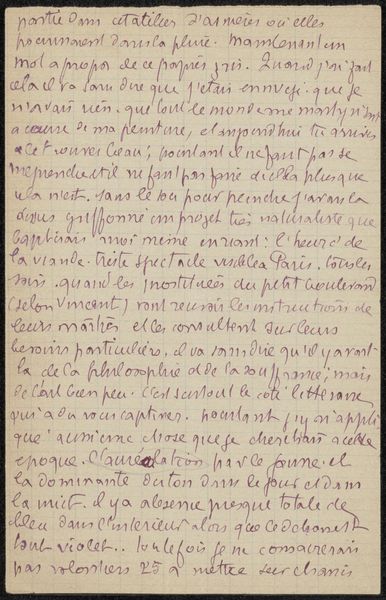 partie dans cet atelier d'armées où elles
pourrissent dans la pluie. Maintenant un
mot a propos de ce papier gris. Quand j'ai fait
cela il va sans dire que j'etais ennuyé. que je
n'avais rien. que tout le monde me martyrisait
a cause de ma peinture, et aujourd'hui tu arrives
et le trouves beau; pourtant il ne faut pas se
meprendre et il ne faut pas faire dicela plus que
cela n'est. sans le sou pour peindre j'avais la
dessus griffonné un projet très naturaliste que
baptisais moi même en riant: l'heure de
la viande. triste spectacle visible a Paris. tous les
soirs. quand les prostituées du petit boulevard
(selon Vincent) vont recevoir les instructions de
leurs mârles et les consultent sur leurs
besoins particuliers. il va sans dire qu'il y avait
la de la philosophie et de la souffrance; mais
de l'art bien peu. c'est surtout le coté litteraire
qui a du vous captiver. pourtant j'y ai appli
que aussi une chose que je cherchais a cette
epoque. par le jaune. et
la dominante du ton dans le jour et dans
la nuit. il y a absence presque totale de
bleu dans l'interieur alors que le dehors est
tout violet.. toutefois je ne consacrerais
pas volontiers 25 a mettre sur chassis